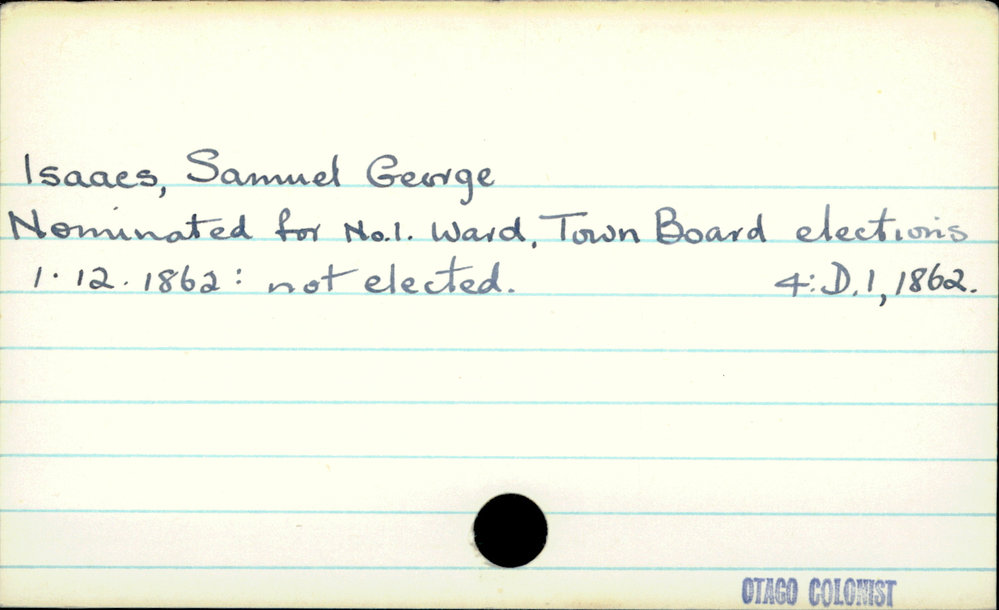 Isaacs, Samuel George
Nominated for No.1. Ward, Town Board elections
1.12.1862: not elected. 4:D.1,1862.
OTAGO COLONIST